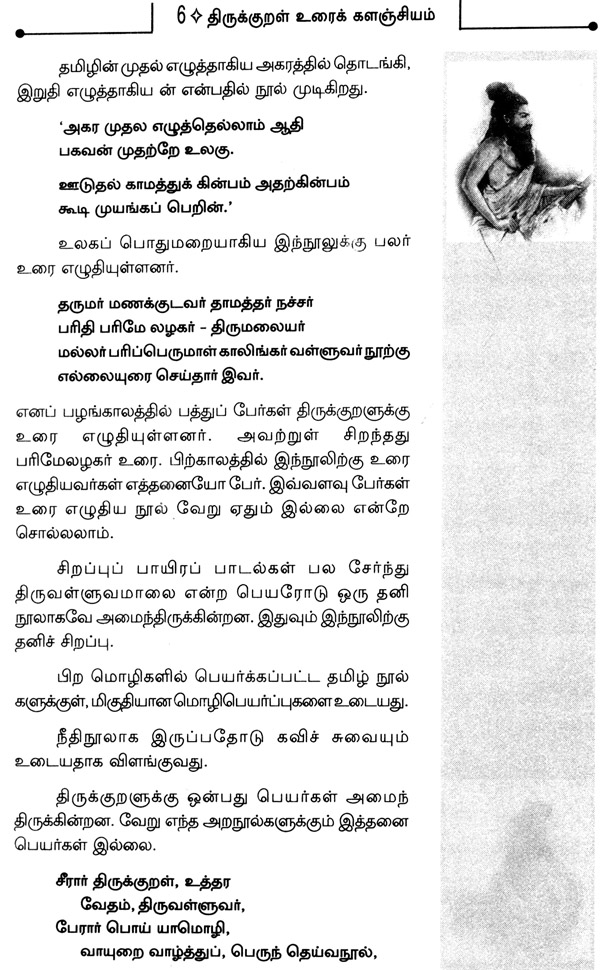 6 ✧ திருக்குறள் உரைக் களஞ்சியம்
தமிழின் முதல் எழுத்தாகிய அகரத்தில் தொடங்கி,
இறுதி எழுத்தாகிய ன் என்பதில் நூல் முடிகிறது.
'அகர முதல எழுத்தெல்லாம் ஆதி
பகவன் முதற்றே உலகு.
ஊடுதல் காமத்துக் கின்பம் அதற்கின்பம்
கூடி முயங்கப் பெறின்.'
உலகப் பொதுமறையாகிய இந்நூலுக்கு பலர்
உரை எழுதியுள்ளனர்.
தருமர் மணக்குடவர் தாமத்தர் நச்சர்
பரிதி பரிமே லழகர் – திருமலையர்
மல்லர் பரிப்பெருமாள் காலிங்கர் வள்ளுவர் நூற்கு
எல்லையுரை செய்தார் இவர்.
எனப் பழங்காலத்தில் பத்துப் பேர்கள் திருக்குறளுக்கு
உரை எழுதியுள்ளனர். அவற்றுள் சிறந்தது
பரிமேலழகர் உரை. பிற்காலத்தில் இந்நூலிற்கு உரை
எழுதியவர்கள் எத்தனையோ பேர். இவ்வளவு பேர்கள்
உரை எழுதிய நூல் வேறு ஏதும் இல்லை என்றே
சொல்லலாம்.
சிறப்புப் பாயிரப் பாடல்கள் பல சேர்ந்து
திருவள்ளுவமாலை என்ற பெயரோடு ஒரு தனி
நூலாகவே அமைந்திருக்கின்றன. இதுவும் இந்நூலிற்கு
தனிச் சிறப்பு.
பிற மொழிகளில் பெயர்க்கப்பட்ட தமிழ் நூல்
களுக்குள், மிகுதியான மொழிபெயர்ப்புகளை உடையது.
நீதிநூலாக இருப்பதோடு கவிச் சுவையும்
உடையதாக விளங்குவது.
திருக்குறளுக்கு ஒன்பது பெயர்கள் அமைந்
திருக்கின்றன. வேறு எந்த அறநூல்களுக்கும் இத்தனை
பெயர்கள் இல்லை.
சீரார் திருக்குறள், உத்தர
வேதம், திருவள்ளுவர்,
பேரார் பொய் யாமொழி,
வாயுறை வாழ்த்துப், பெருந் தெய்வநூல்,